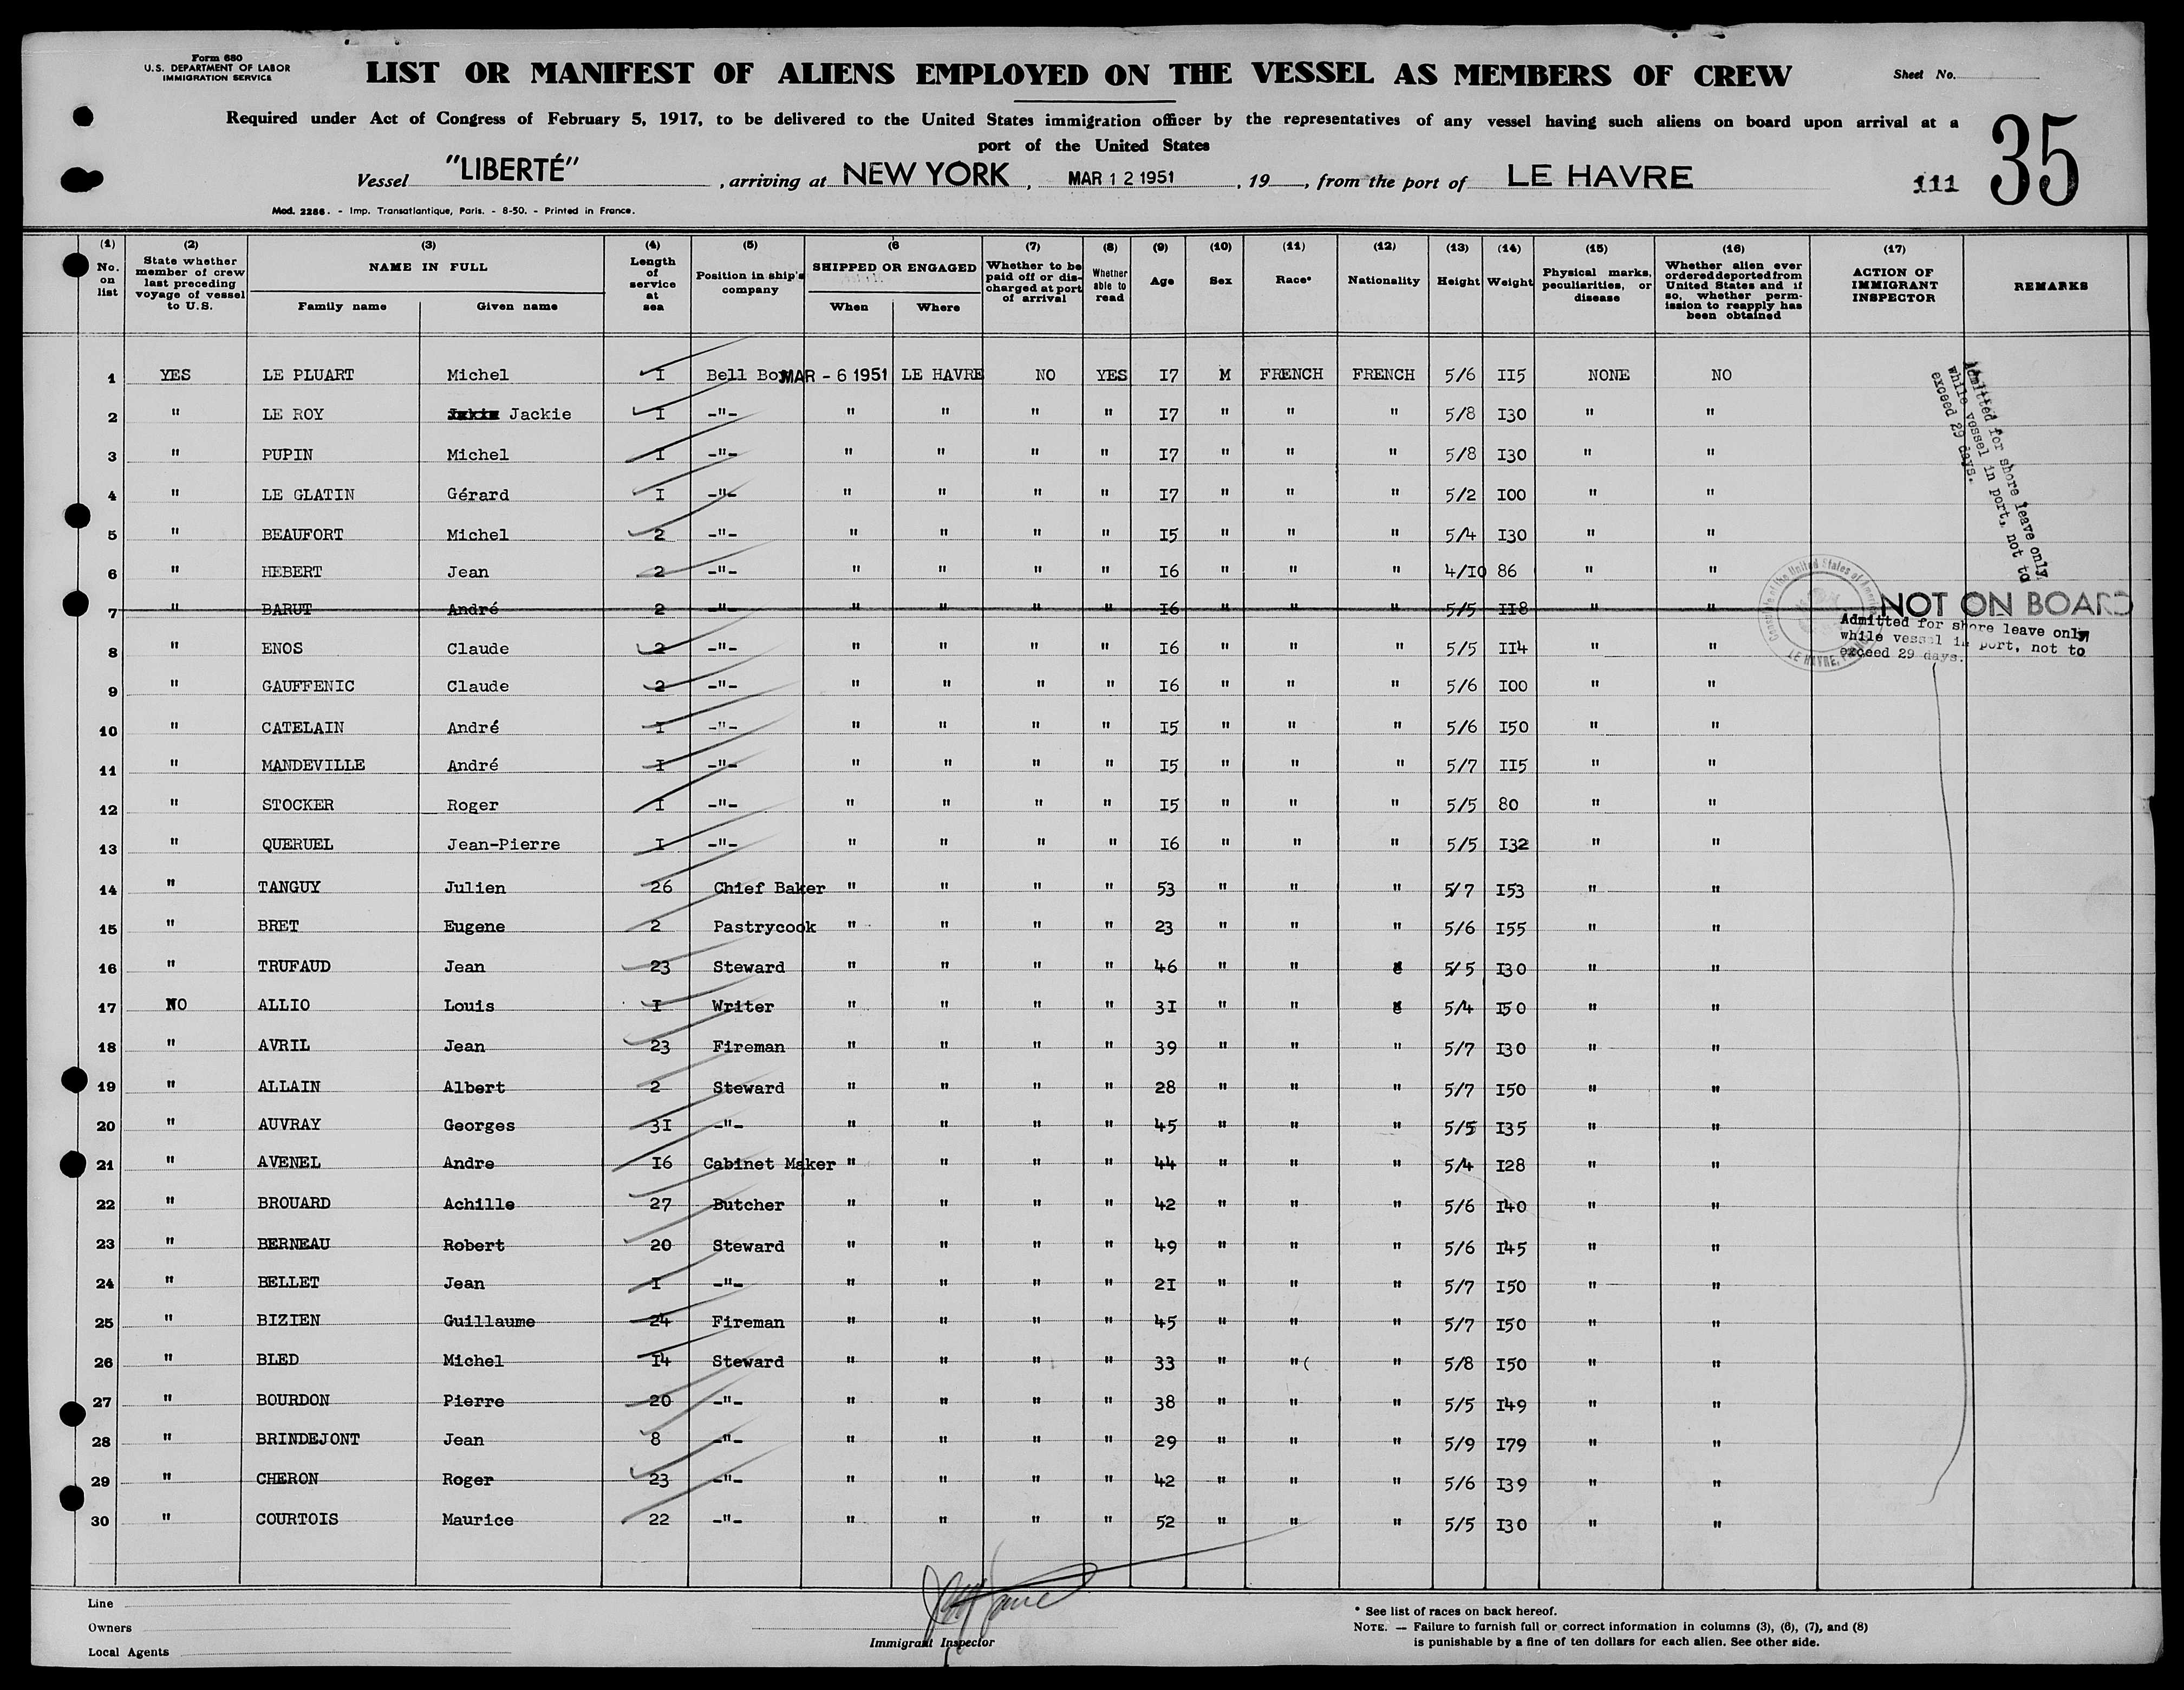 Form 680
U.S. DEPARTMENT OF LABOR
IMMIGRATION SERVICE
LIST OR MANIFEST OF ALIENS EMPLOYED ON THE VESSEL AS MEMBERS OF CREW
Sheet No.
Required under Act of Congress of February 5, 1917, to be delivered to the United States immigration officer by the representatives of any vessel having such aliens on board upon arrival at a
port of the United States
35
Vessel "LIBERTÉ", arriving at NEW YORK, MAR 12 1951, 19, from the port of LE HAVRE 111
Mod. 2286. - Imp. Transatlantique, Paris. - 8-50. - Printed in France.
(1) No. on list
(2) State whether member of crew last preceding voyage of vessel to U.S.
(3) NAME IN FULL Family name Given name
(4) Length of service at sea
(5) Position in ship's company
(6 SHIPPED OR ENGAGED When Where
(7) Whether to be paid off or discharged at port of arrival
(8) Whether able to read
(9) Age
(10) Sex
(11) Race*
(12) Nationality
(13) Height
(14) Weight
(15) Physical marks, peculiarities, or disease
(16) Whether alien ever ordered deported from United States and if so, whether permission to reapply has been obtained
(17) ACTION OF IMMIGRANT INSPECTOR
REMARKS
1 YES LE PLUART Michel I Bell Boy MAR - 6 1951 LE HAVRE NO YES I7 M FRENCH FRENCH 5/6 II5 NONE NO
2 " LE ROY Jackie I -"- " " " " I7 " " " 5/8 I30 " "
3 " PUPIN Michel I -"- " " " " I7 " " " 5/8 I30 " "
4 " LE GLATIN Gérard I -"- " " " " I7 " " " 5/2 I00 " "
5 " BEAUFORT Michel 2 -"- " " " " I5 " " " 5/4 I30 " "
6 " HEBERT Jean 2 -"- " " " " I6 " " " 4/I0 86 " "
7 " BARUT André 2 -"- " " " " I6 " " " 5/5 II8 " " NOT ON BOARD
8 " ENOS Claude 2 -"- " " " " I6 " " " 5/5 II4 " "
9 " GAUFFENIC Claude 2 -"- " " " " I6 " " " 5/6 I00 " "
10 " CATELAIN André I -"- " " " " I5 " " " 5/6 I50 " "
11 " MANDEVILLE André I -"- " " " " I5 " " " 5/7 II5 " "
12 " STOCKER Roger I -"- " " " " I5 " " " 5/5 80 " "
13 " QUERUEL Jean-Pierre I -"- " " " " I6 " " " 5/5 I32 " "
14 " TANGUY Julien 26 Chief Baker " " " " 53 " " " 5/7 I53 " "
15 " BRET Eugene 2 Pastrycook " " " " 23 " " " 5/6 I55 " "
16 " TRUFAUD Jean 23 Steward " " " " 46 " " 5/5 I30 " "
17 NO ALLIO Louis I Writer " " " " 3I " " 5/4 I50 " "
18 " AVRIL Jean 23 Fireman " " " " 39 " " " 5/7 I30 " "
19 " ALLAIN Albert 2 Steward " " " " 28 " " " 5/7 I50 " "
20 " AUVRAY Georges 3I -"- " " " " 45 " " " 5/5 I35 " "
21 " AVENEL Andre I6 Cabinet Maker " " " " 44 " " " 5/4 I28 " "
22 " BROUARD Achille 27 Butcher " " " " 42 " " " 5/6 I40 " "
23 " BERNEAU Robert 20 Steward " " " " 49 " " " 5/6 I45 " "
24 " BELLET Jean I -"- " " " " 2I " " " 5/7 I50 " "
25 " BIZIEN Guillaume 24 Fireman " " " " 45 " " " 5/7 I50 " "
26 " BLED Michel I4 Steward " " " " 33 " "( " 5/8 I50 " "
27 " BOURDON Pierre 20 -"- " " " " 38 " " " 5/5 I49 " "
28 " BRINDEJONT Jean 8 -"- " " " " 29 " " " 5/9 I79 " "
29 " CHERON Roger 23 -"- " " " " 42 " " " 5/6 I39 " "
30 " COURTOIS Maurice 22 -"- " " " " 52 " " " 5/5 I30 " "
Admitted for shore leave only
while vessel in port, not to
exceed 29 days.
Consulate of the United States of America
LE HAVRE,
Admitted for shore leave only
while vessel in port, not to
exceed 29 days.
Line
Owners
Local Agents
Immigrant Inspector
* See list of races on back hereof.
NOTE. — Failure to furnish full or correct information in columns (3), (6), (7), and (8)
is punishable by a fine of ten dollars for each alien. See other side.